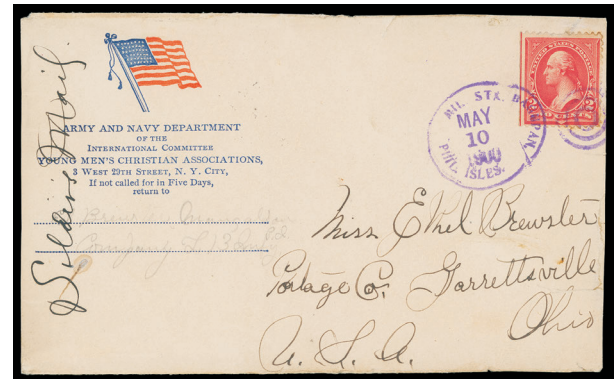 Soldier's Mail
ARMY AND NAVY DEPARTMENT
OF THE
INTERNATIONAL COMMITTEE
YOUNG MEN'S CHRISTIAN ASSOCIATIONS,
3 WEST 29TH STREET, N. Y. CITY,
If not called for in Five Days,
return to
Company
MIL. STA.
MAY
10
1900
PHIL. ISLES.
UNITED STATES POSTAGE
2 2
TWO CENTS
Miss Ethel Brewster
Portage Co. Garrettsville
Ohio
U. S. A.